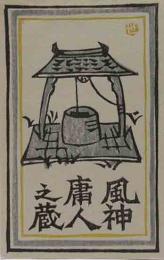 風神
庸人
之蔵